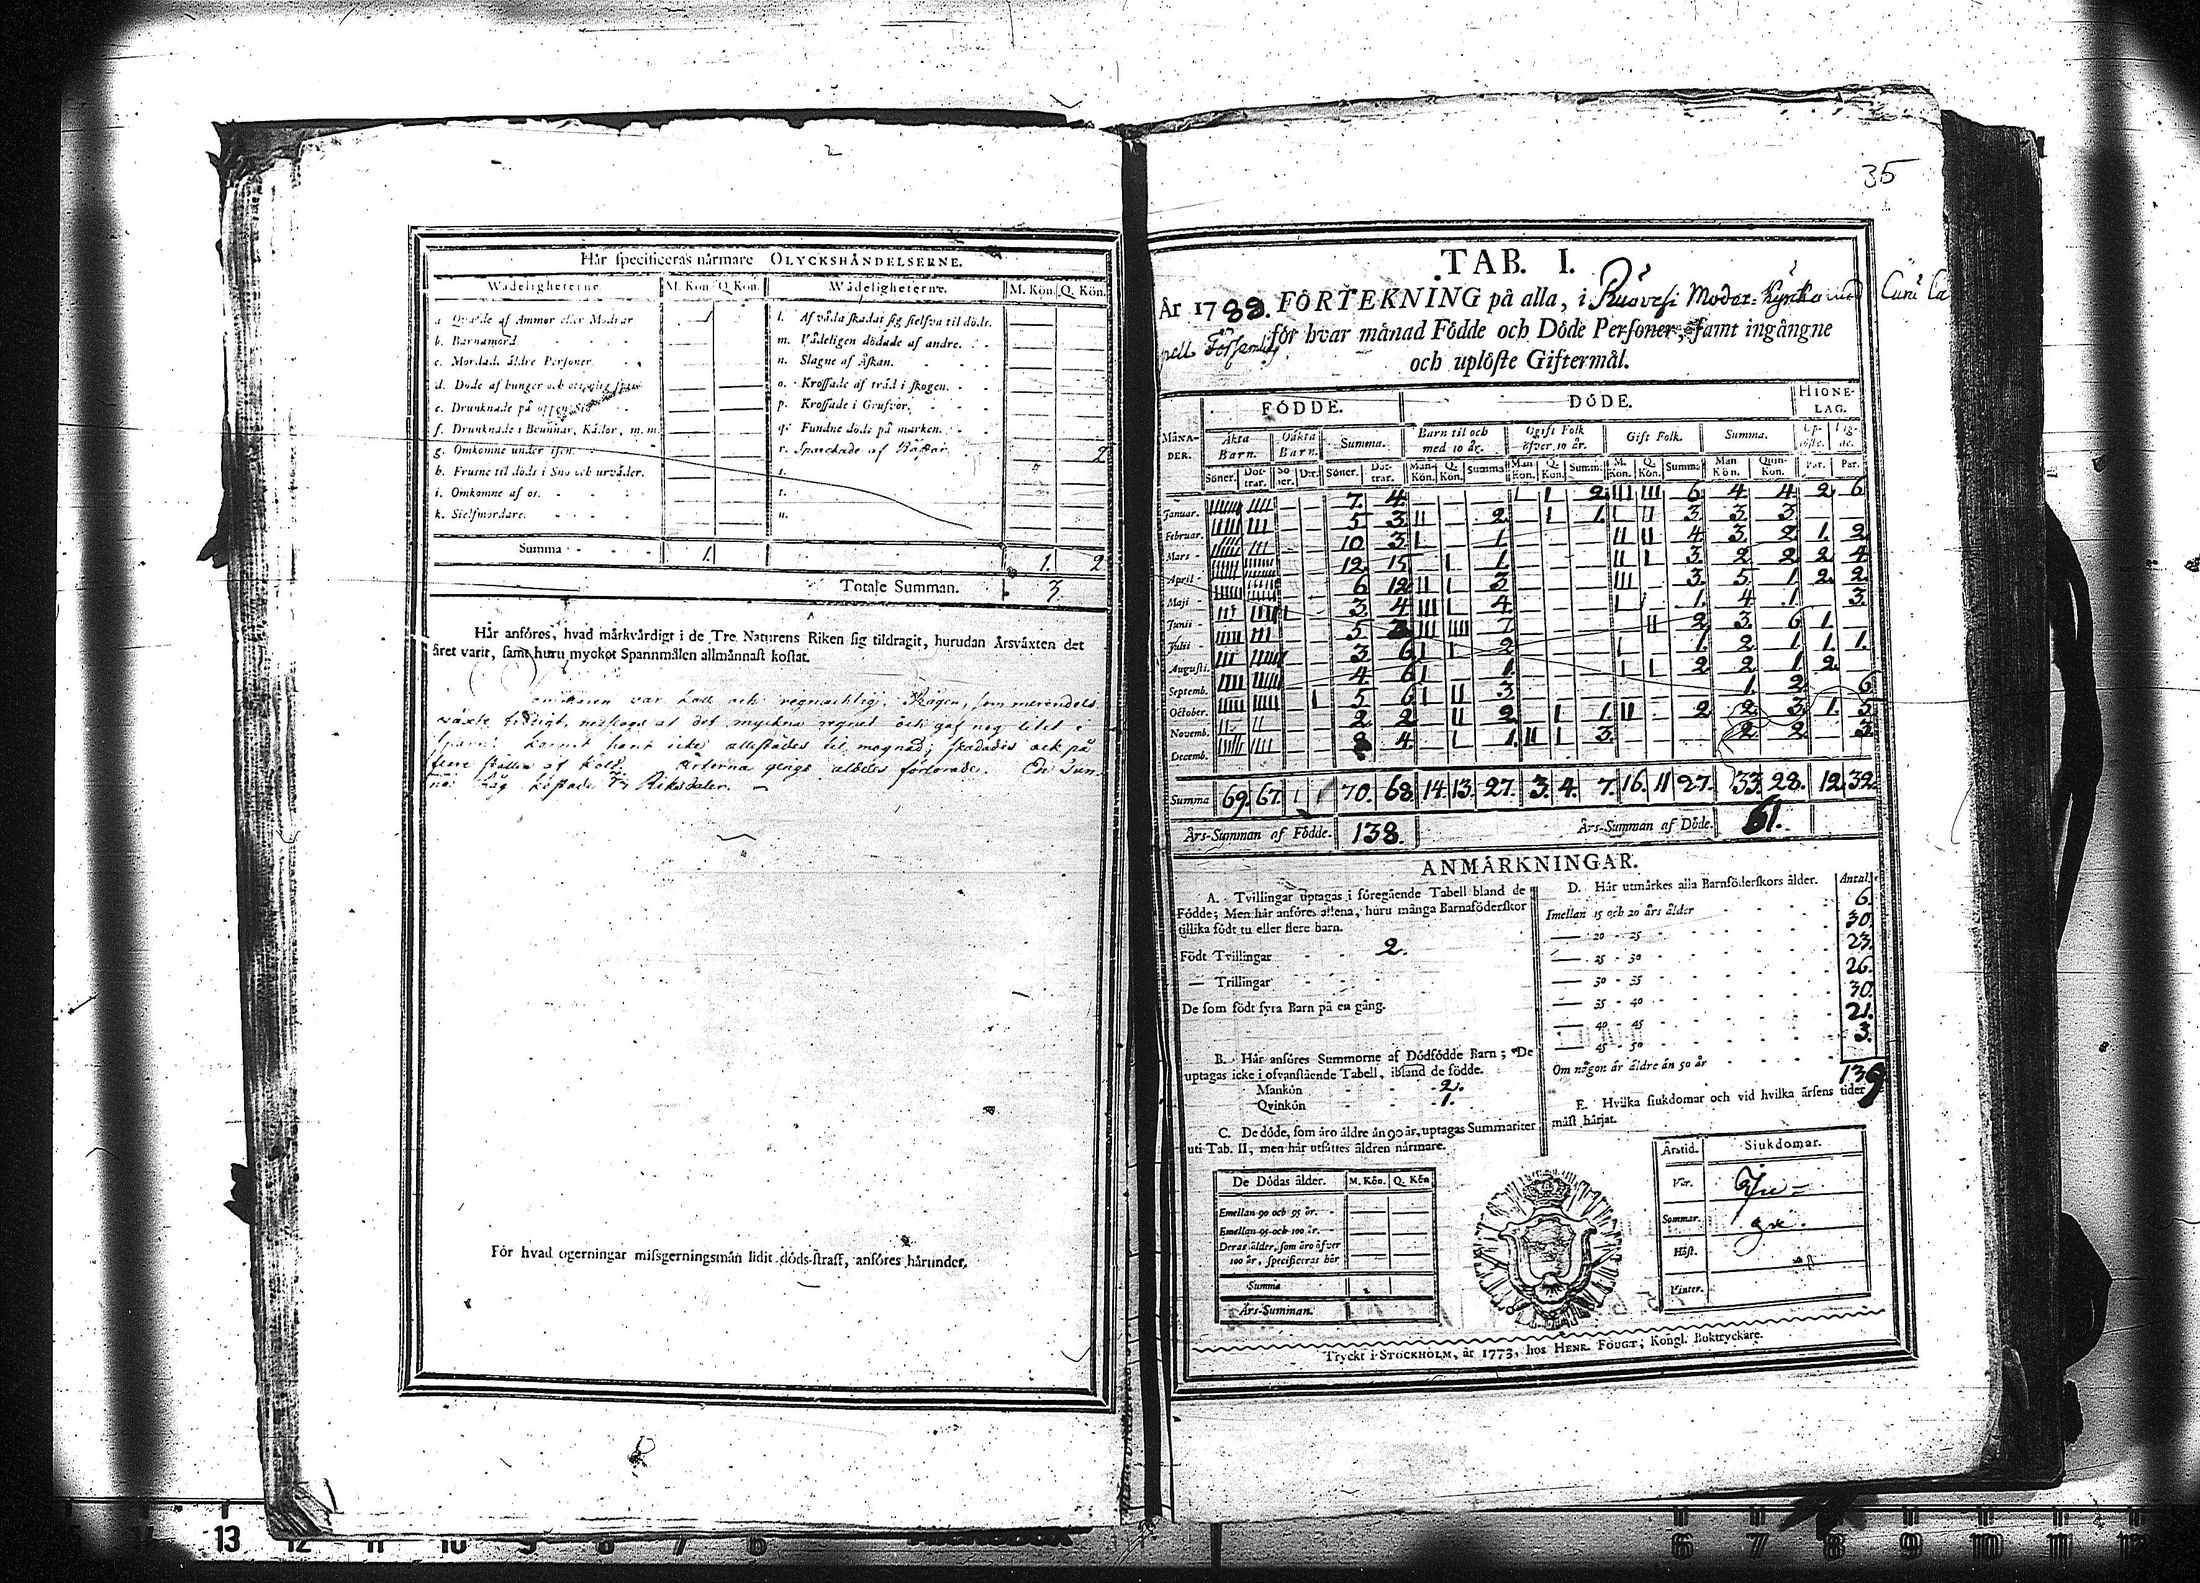 Hår specificeras nårmare OLYCKSHÅNDELSERNE.
Wådeligheterne. M. Kön Q. Kön. Wådeligheterne. M. Kön. Q. Kön.
a Qvafde af Ammor eller Modrar 1 l. Af våda skadat sig sielfva til döds.
b. Barnamord. m. Vådeligen dödade af andre.
c. Mördade äldre Personer. n. Slagne af Åskan.
d. Döde af hunger och o. Krossade af träd i skogen.
e. Drunknade på öppen Siö p. Krossade i Grufvor.
f. Drunknade i Brunnar, Kådor, m. m. q. Fundne döde på marken.
g. Omkomne under isen. r. Sparckade af Hästar 2
h. Frusne til döds i Snö och urväder. s.
i. Omkomne af os. t.
k. Sielfmördare. u.
Summa 1. 1. 2
Totale Summan. 3.
Hår anföres, hvad mårkvårdigt i de Tre Naturens Riken sig tildragit, hurudan Årsväxten det
året varit, samt huru myckot Spannmålen allmånnast kostat.
var kall och regnachtig. Rågen, som merendels
växte frodigt, nedslogs af det myckna regnet och gaf nog litet
Kornet hant icke allestädes til mognad; skadades ock på
flere ställen af köld. Ärterna gingo aldeles förlorade. En Tun-
na Råg kostade Riksdaler.
För hvad ogerningar missgerningsmån lidit döds-straff, anföres hårunder.
35
TAB. I.
År 1788. FÖRTEKNING på alla, i Ruovesi Moder-Kyrka med Curu Ca
pell Församl. för hvar månad Födde och Döde Personer, samt ingångne
och uplöste Giftermål.
FÖDDE. DÖDE. HIONE-
LAG.
MÅNA-
DER. Äkta
Barn. Oäkta
Barn. Summa. Barn til och
med 10 år. Ogift Folk
öfver 10 år. Gift Folk. Summa. Up-
löste. Ing-
ne.
Söner. Döt-
trar. Sö-
ner. Dtr. Söner. Döt-
trar. Man-
Kön. Q.
Kön. Summa Man
Kön. Q.
Kön. Summ: M.
Kön. Q.
Kön. Summa Man
Kön. Quin-
Kön. Par. Par.
Januar. 7. 4. 1 1 2. III III 6. 4. 4. 2. 6.
Februar. 5 3 II 2. 1 1. I II 3 3. 3.
Mars 10 3. I 1. II II 4 3. 2. 1. 2.
April 12 15 I 1. II I 3. 2. 2. 2 4
Maji 6 12 II I 3. III 3. 5. 1. 2. 2.
Junii 3. 4 III I 4. I 1. 4. 1. 3.
Julii 5 III IIII 7. II 2. 3. 6. 1.
Augusti. 3 6 I I 2. I 1. 2. 1. 1. 1.
Septemb. 4 6 I 1. I I 2. 2 1 2.
October. 5 6 I II 3. 1. 2. 6
Novemb. 2. 2. II 2. 1 1. II 2. 2. 3. 1. 5
Decemb. 8 4. I 1. II I 3. 2 2. 3.
Summa 69. 67. 1 1 70. 68. 14. 13. 27. 3. 4. 7. 16. 11 27. 33. 28. 12. 32.
Års-Summan af Födde. 138. Års-Summan af Döde. 61.
ANMÅRKNINGAR.
A. Tvillingar uptagas i föregående Tabell bland de
Födde; Men hår anföres allena, huru många Barnaföderskor
tillika födt tu eller flere barn.
Födt Tvillingar 2.
— Trillingar
De som födt fyra Barn på en gång.
B. Hår anföres Summorne af Dödfödde Barn; De
uptagas icke i ofvanstående Tabell, ibland de födde.
Mankön 2.
Qvinkön 1.
C. De döde, som åro åldre ån 90 år, uptagas Summariter
uti Tab. II, men hår utsåttes åldren nårmare.
De Dödas ålder. M. Kön. Q. Kön
Emellan 90 och 95 år.
Emellan 95 och 100 år.
Deras ålder, som åro öfver
100 år, specificeras hår
Summa
Års-Summan.
D. Hår utmårkes alla Barnföderskors ålder. Antal.
Imellan 15 och 20 års ålder 6.
20 - 25 30.
25 - 30 23.
30 - 35 26.
35 - 40 30.
40 - 45 21.
45 - 50 3.
Om någon år åldre ån 50 år
139
E. Hvilka siukdomar och vid hvilka årsens tider
måst hårjat.
Årstid. Siukdomar.
Vår.
Sommar.
Höst.
Vinter.
Tryckt i STOCKHOLM, år 1773, hos HENR. FOUGT, Kongl. Boktryckare.
13 12 11 10 9 8 7 6
6 7 8 9 10 11 12